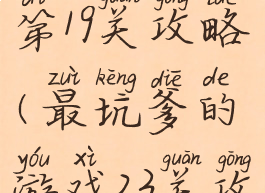 dì guān gōng lüè
第19关攻略
zuì kēng diē de
(最坑爹的
yóu xì guān gōng
游戏23关攻